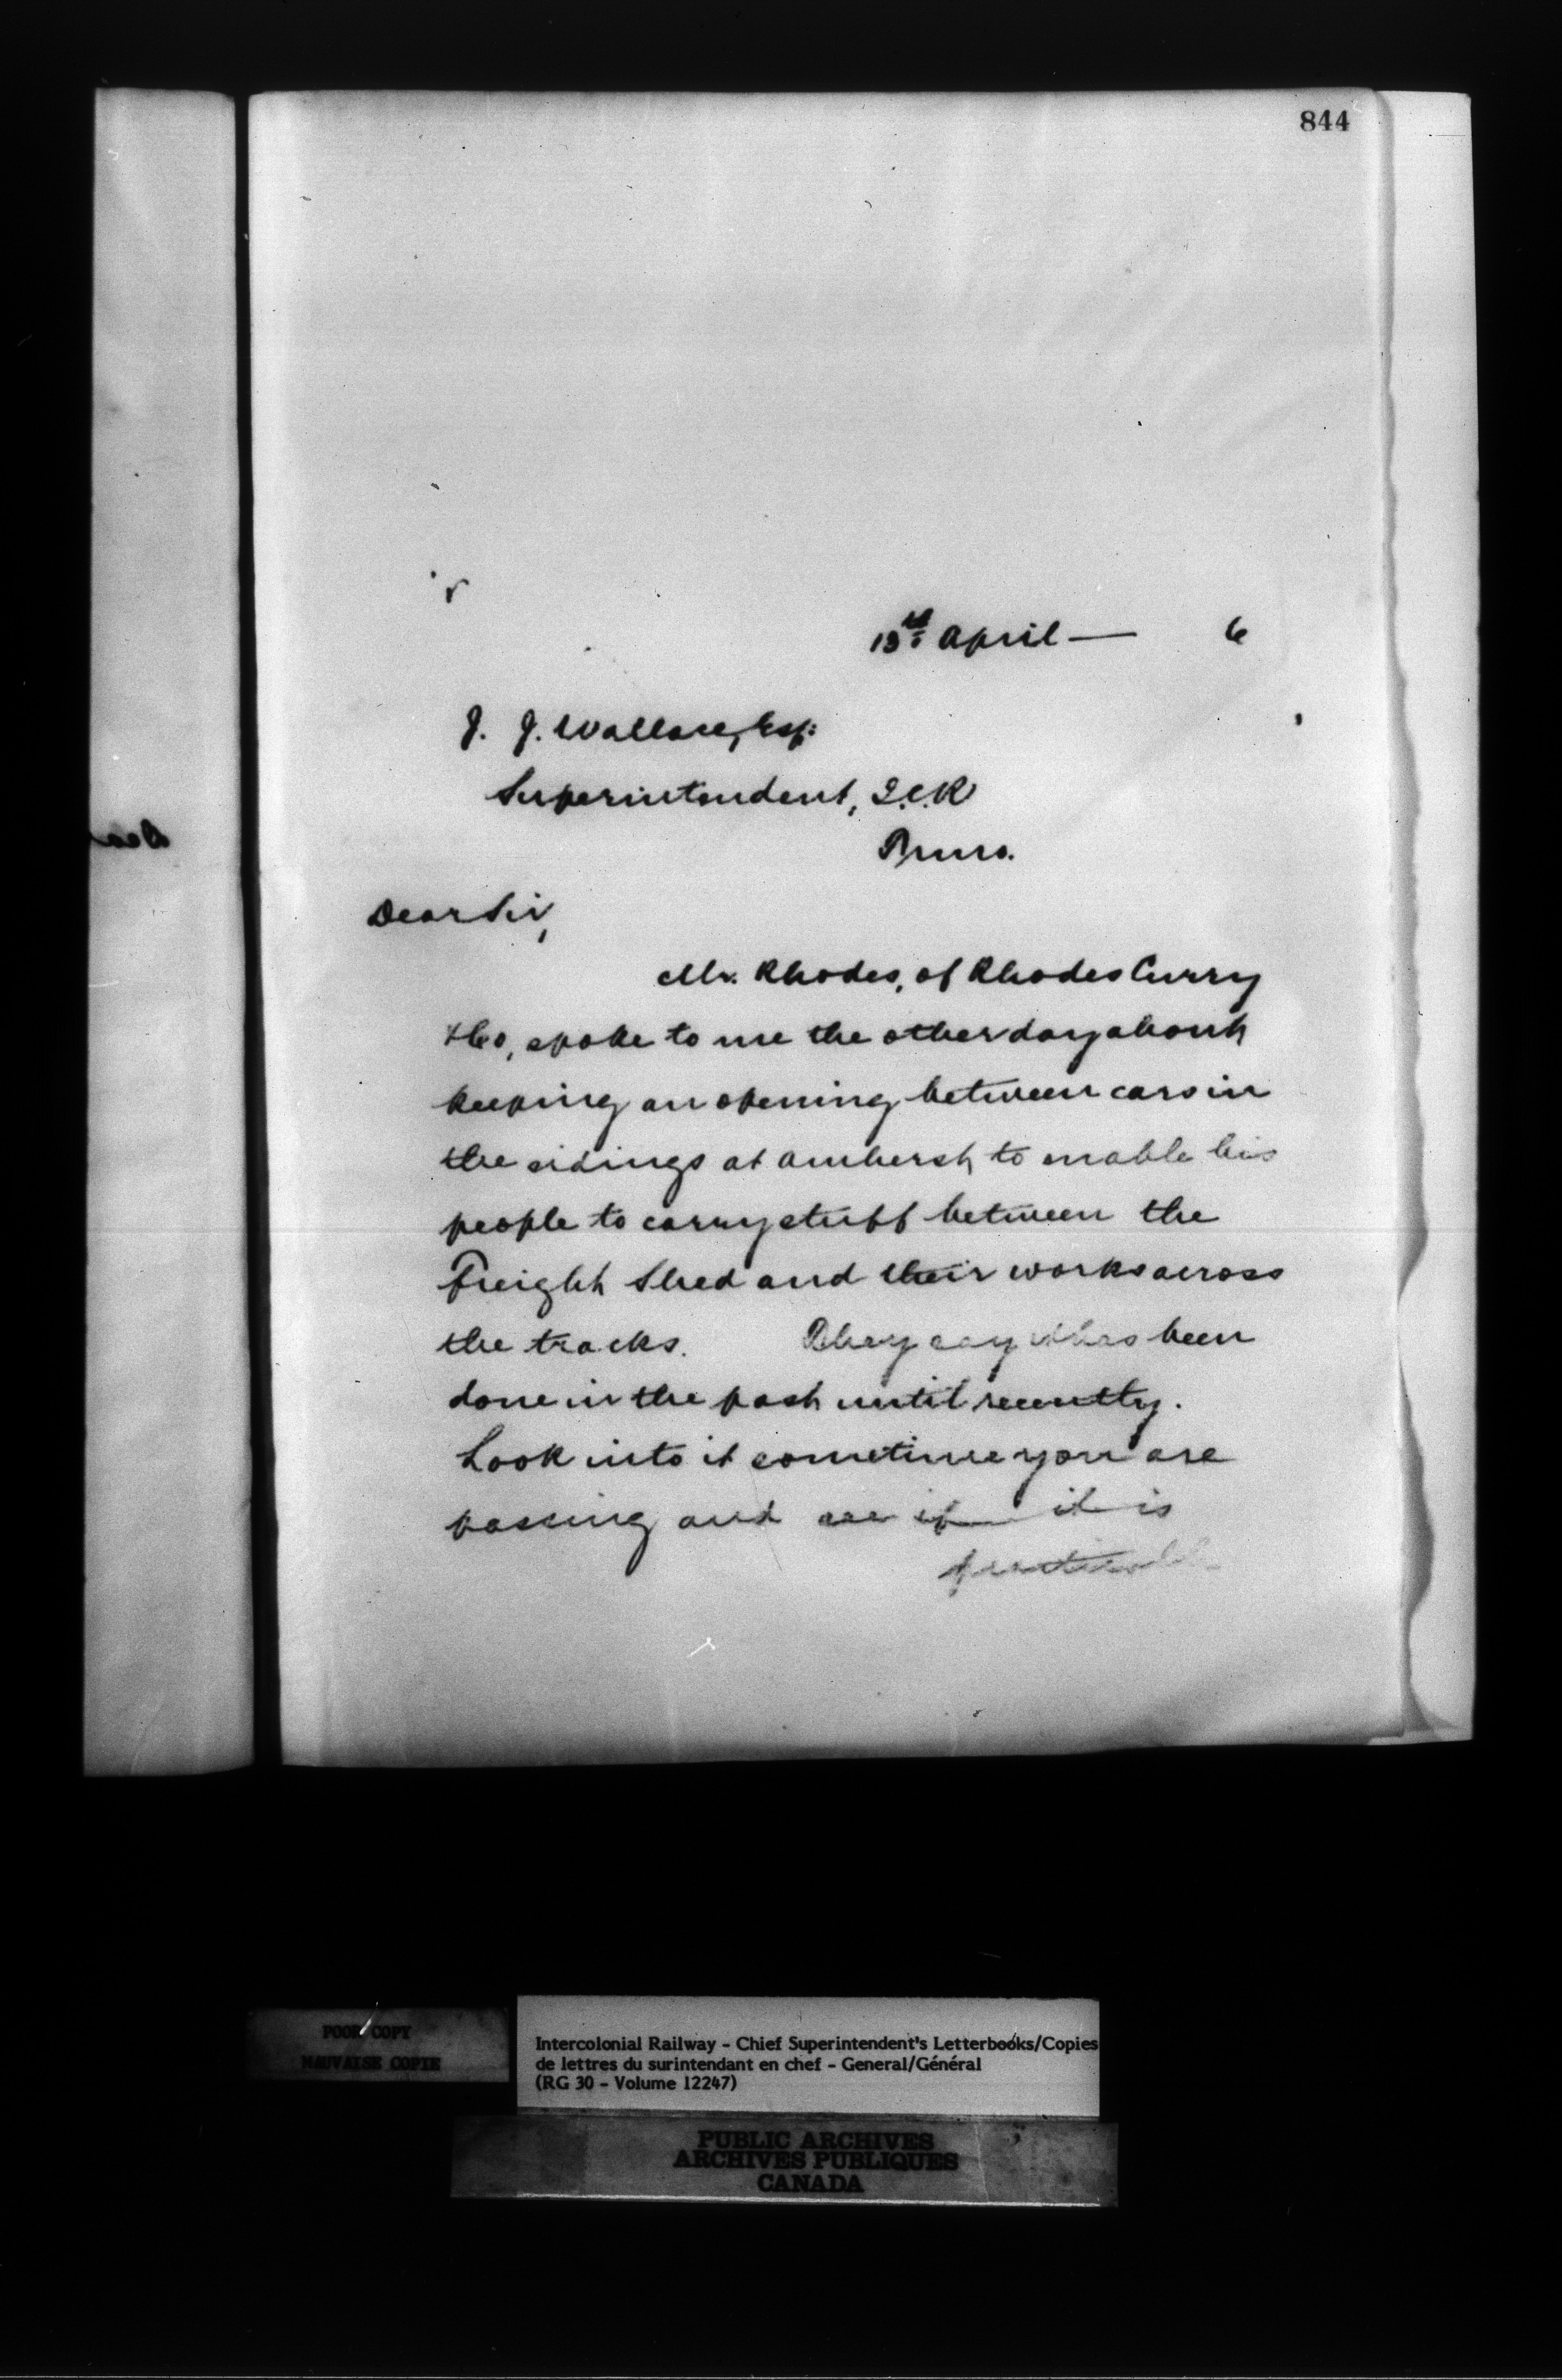 844
13th April — 6
J. J. Wallace, Esq:
Superintendent, I.C.R
Truro.
Dear Sir,
Mr. Rhodes, of Rhodes Curry
& Co, spoke to me the other day about
keeping an opening between cars in
the sidings at Amherst to enable his
people to carry stuff between the
Freight Shed and their works across
the tracks. They say it has been
done in the past until recently.
Look into it sometime you are
passing and see if it is
practicable
POOR COPY
MAUVAISE COPIE
Intercolonial Railway - Chief Superintendent's Letterbooks/Copies
de lettres du surintendant en chef - General/Général
(RG 30 - Volume 12247)
PUBLIC ARCHIVES
ARCHIVES PUBLIQUES
CANADA